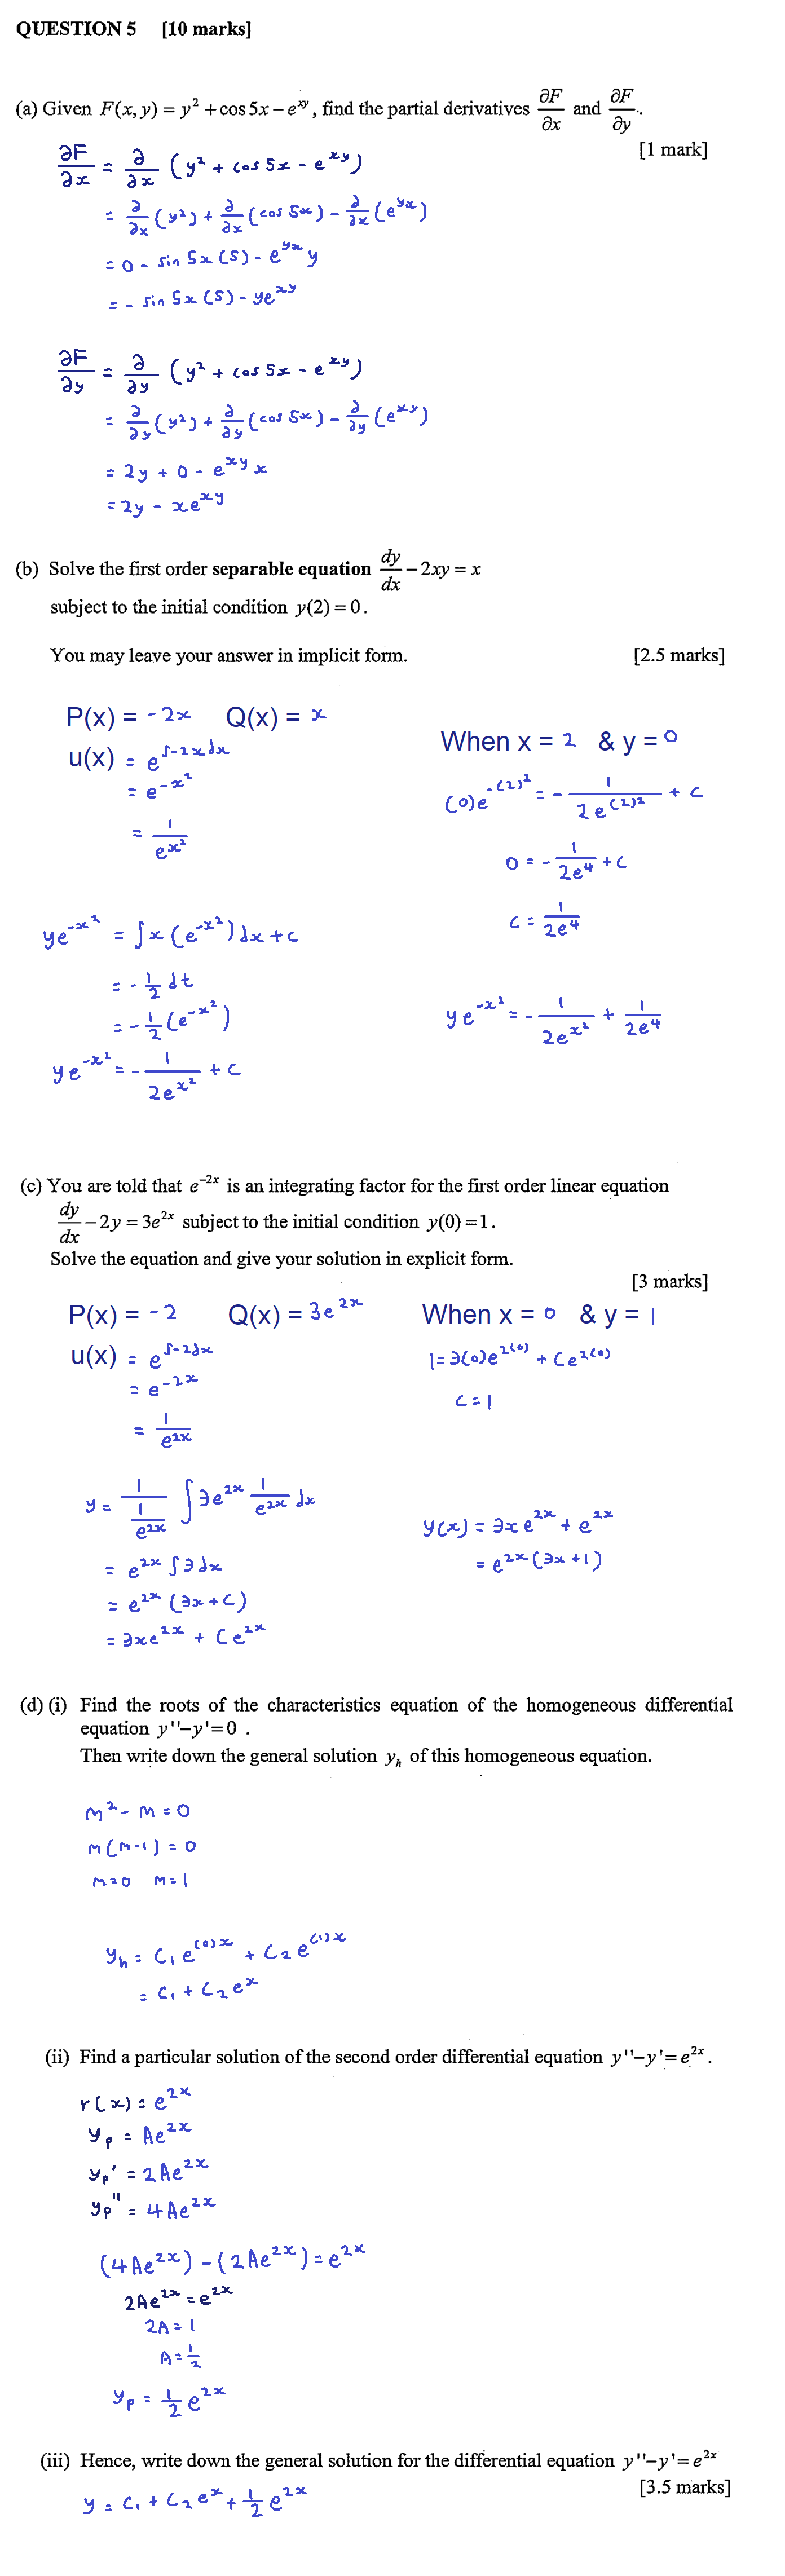 QUESTION 5 [10 marks]
(a) Given F(x, y) = y² + cos 5x − e^{xy}, find the partial derivatives ∂F/∂x and ∂F/∂y.
[1 mark]
∂F/∂x = ∂/∂x (y² + cos 5x - e^{xy})
= ∂/∂x (y²) + ∂/∂x (cos 5x) - ∂/∂x (e^{yx})
= 0 - sin 5x (5) - e^{yx} y
= - sin 5x (5) - ye^{xy}
∂F/∂y = ∂/∂y (y² + cos 5x - e^{xy})
= ∂/∂y (y²) + ∂/∂y (cos 5x) - ∂/∂y (e^{xy})
= 2y + 0 - e^{xy} x
= 2y - xe^{xy}
(b) Solve the first order separable equation dy/dx − 2xy = x
subject to the initial condition y(2) = 0.
You may leave your answer in implicit form. [2.5 marks]
P(x) = -2x Q(x) = x
u(x) = e^{∫-2xdx}
= e^{-x²}
= 1/e^{x²}
ye^{-x²} = ∫x(e^{-x²})dx + c
= -1/2 dt
= -1/2 (e^{-x²})
ye^{-x²} = -1/(2e^{x²}) + c
When x = 2 & y = 0
(0)e^{-(2)²} = -1/(2e^{(2)²}) + c
0 = -1/(2e⁴) + c
c = 1/(2e⁴)
ye^{-x²} = -1/(2e^{x²}) + 1/(2e⁴)
(c) You are told that e^{−2x} is an integrating factor for the first order linear equation
dy/dx − 2y = 3e^{2x} subject to the initial condition y(0) = 1.
Solve the equation and give your solution in explicit form.
[3 marks]
P(x) = -2 Q(x) = 3e^{2x}
u(x) = e^{∫-2dx}
= e^{-2x}
= 1/e^{2x}
y = 1/(1/e^{2x}) ∫3e^{2x} 1/e^{2x} dx
= e^{2x} ∫3dx
= e^{2x} (3x + C)
= 3xe^{2x} + Ce^{2x}
When x = 0 & y = 1
1 = 3(0)e^{2(0)} + Ce^{2(0)}
c = 1
y(x) = 3xe^{2x} + e^{2x}
= e^{2x}(3x + 1)
(d) (i) Find the roots of the characteristics equation of the homogeneous differential
equation y''−y'=0 .
Then write down the general solution y_h of this homogeneous equation.
m² - m = 0
m(m-1) = 0
m=0 m=1
y_h = C₁e^{(0)x} + C₂e^{(1)x}
= C₁ + C₂e^x
(ii) Find a particular solution of the second order differential equation y''−y'= e^{2x}.
r(x) = e^{2x}
y_p = Ae^{2x}
y_p' = 2Ae^{2x}
y_p'' = 4Ae^{2x}
(4Ae^{2x}) - (2Ae^{2x}) = e^{2x}
2Ae^{2x} = e^{2x}
2A = 1
A = 1/2
y_p = 1/2 e^{2x}
(iii) Hence, write down the general solution for the differential equation y''−y'= e^{2x}
[3.5 marks]
y = C₁ + C₂e^x + 1/2 e^{2x}